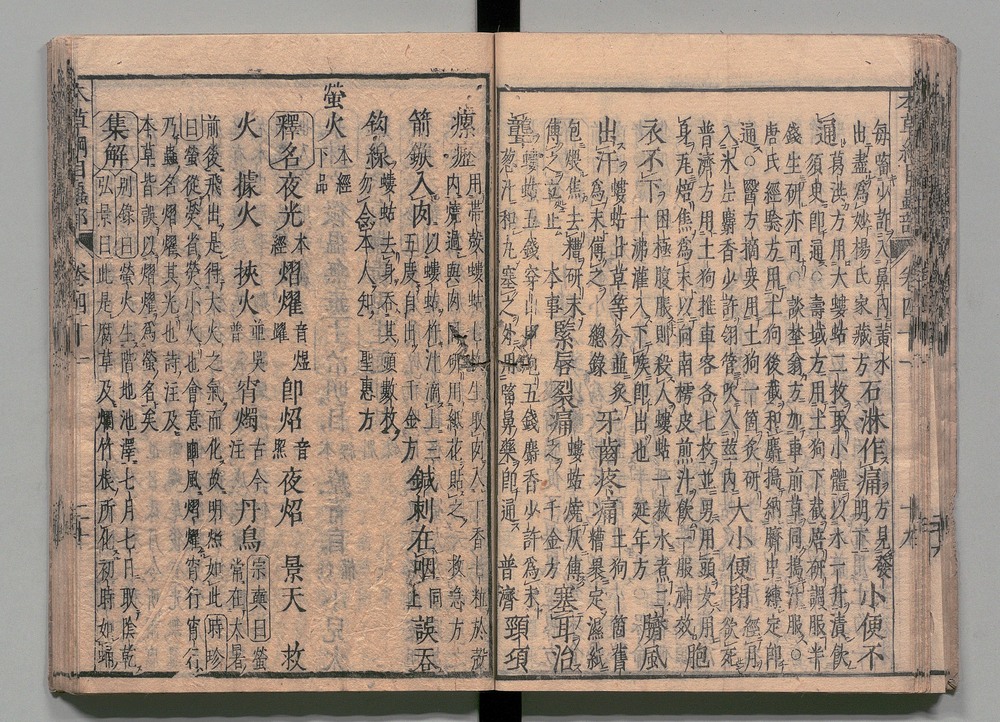 每噙少許入鼻內黃水
出盡爲妙楊氏家藏方
石淋作痛
方見發
明下
小便不
通
葛洪方用大螻蛄二枚取小體以水一升漬飲
須臾即通○壽域方用土狗下截焙研調服半
錢生研亦可○談埜翁方加車前草同搗汁服○
唐氏經驗方用土狗後截和麝搗納臍中縛定即
通○醫方摘要用土狗一箇炙研
入冰片麝香少許翎管吹入莖內
大小便閉
經月
欲死
普濟方用土狗推車客各七枚並男用頭女用
身瓦焙焦爲末以向南樗皮煎汁飲一服神效
胞
衣不下
困極腹脹則殺人螻蛄一枚水煮二
十沸灌入下喉即出也延年方
臍風
出汗
螻蛄甘草等分並炙
爲末傅之 總錄
牙齒疼痛
土狗一箇舊
糟裹定濕紙
包煨焦去糟研末
傅之立止 本事
緊唇裂痛
螻蛄燒灰傅
之 千金方
塞耳治
聾
螻蛄五錢穿山甲炮五錢麝香少許爲末
葱汁和丸塞之外用㗜鼻藥即通 普濟
頸項
瘰癧
用帶殼螻蛄七枚生取肉入丁香七粒於殼
內燒過與肉同研用紙花貼之 救急方
箭鏃入肉
以螻蛄杵汁滴上三
五度自出 千金方
鍼刺在咽
同
上
誤吞
鉤線
螻蛄去身吞其頭數枚
勿令本人知 聖惠方
螢火
本經
下品
釋名 夜光
本
經
熠燿
音煜
燿
卽炤
音
照
夜炤 景天 救
火 據火 挾火
並吳
普
宵燭
古今
注
丹鳥
宗奭曰螢
常在大暑
前後飛出是得大火之氣而化故明照如此時珍
曰螢從熒省熒小火也會意豳風熠燿宵行宵行
乃蟲名熠燿其光也詩注及
本草皆誤以熠燿爲螢名矣
集解
別錄曰螢火生階地池澤七月七日取陰乾
弘景曰此是腐草及爛竹根所化初時如蛹
本草綱目蟲部 卷四十一